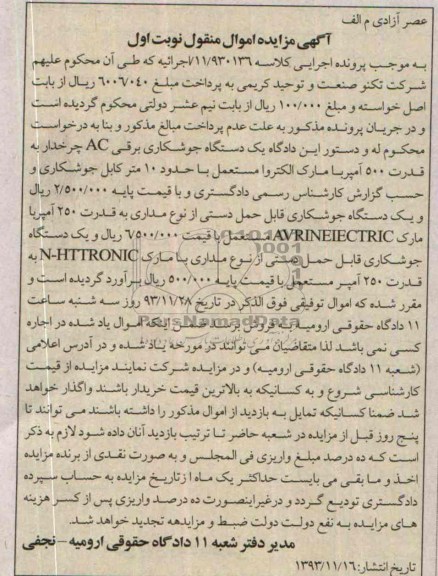 عصر آزادی م الف
آگهی مزایده اموال منقول نوبت اول
به موجب پرونده اجرایی کلاسه ۱۱/۹۳۰۱۳۶/اجرائیه که طی آن محکوم علیهم
شرکت تکنو صنعت و توحید کریمی به پرداخت مبلغ ۶۰۰۶/۰۴۰ ریال از بابت
اصل خواسته و مبلغ ۱۰۰/۰۰۰ ریال از بابت نیم عشر دولتی محکوم گردیده است
و در جریان پرونده مذکور به علت عدم پرداخت مبالغ مذکور و بنا به درخواست
محکوم له و دستور این دادگاه یک دستگاه جوشکاری برقی AC چرخدار به
قدرت ۵۰۰ آمپر با مارک الکتروا مستعمل با حدود ۱۰ متر کابل جوشکاری و
حسب گزارش کارشناس رسمی دادگستری و با قیمت پایه ۲/۵۰۰/۰۰۰ ریال
و یک دستگاه جوشکاری قابل حمل دستی از نوع مداری به قدرت ۲۵۰ آمپر با
مارک AVRINEIECTRIC مستعمل با قیمت ۶/۵۰۰/۰۰۰ ریال و یک دستگاه
جوشکاری قابل حمل دستی از نوع مداری با مارک N-HTTRONIC به
قدرت ۲۵۰ آمپر مستعمل با قیمت پایه ۵۰۰/۰۰۰ ریال برآورد گردیده است و
مقرر شده که اموال توقیفی فوق الذکر در تاریخ ۹۳/۱۱/۲۸ روز سه شنبه ساعت
۱۱ دادگاه حقوقی ارومیه به فروش برسد ضمن اینکه اموال یاد شده در اجاره
کسی نمی باشد لذا متقاضیان می توانند در مورخه یاد شده و در آدرس اعلامی
(شعبه ۱۱ دادگاه حقوقی ارومیه) و در مزایده شرکت نمایند مزایده از قیمت
کارشناسی شروع و به کسانیکه به بالاترین قیمت خریدار باشند واگذار خواهد
شد ضمنا کسانیکه تمایل به بازدید از اموال مذکور را داشته باشند می توانند تا
پنج روز قبل از مزایده در شعبه حاضر تا ترتیب بازدید آنان داده شود لازم به ذکر
است که ده درصد مبلغ واریزی فی المجلس و به صورت نقدی از برنده مزایده
اخذ و ما بقی می بایست حداکثر یک ماه از تاریخ مزایده به حساب سپرده
دادگستری تودیع گردد و درغیراینصورت ده درصد واریزی پس از کسر هزینه
های مزایده به نفع دولت دولت ضبط و مزایدهه تجدید خواهد شد.
مدیر دفتر شعبه ۱۱ دادگاه حقوقی ارومیه – نجفی
تاریخ انتشار: ۱۳۹۳/۱۱/۱۶